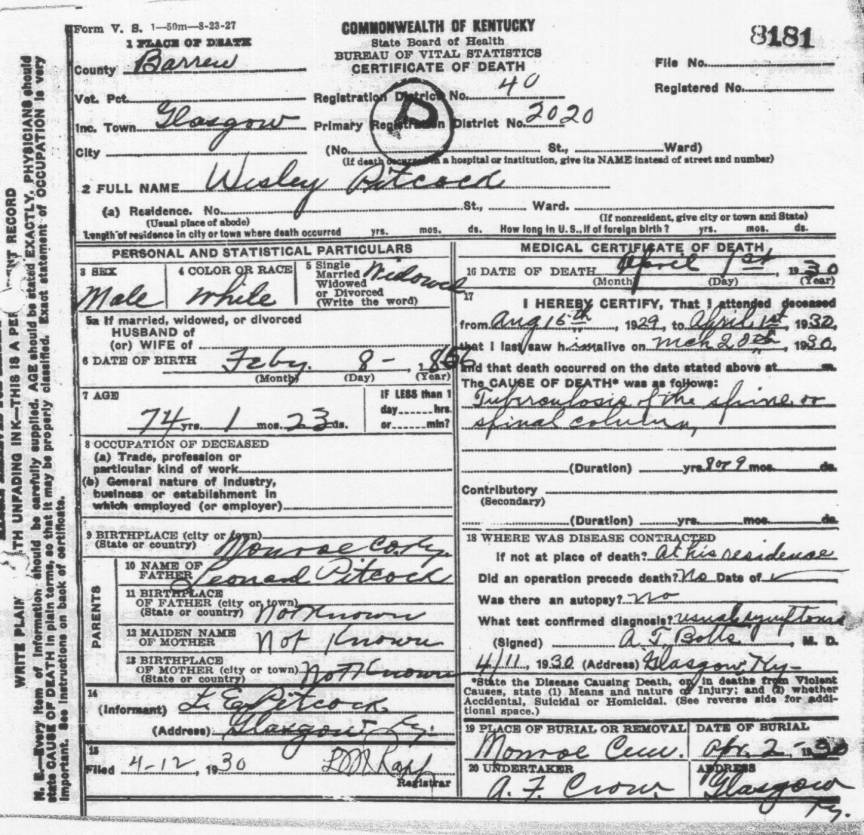 Form V. S. 1—50m—8-23-27
COMMONWEALTH OF KENTUCKY
State Board of Health
BUREAU OF VITAL STATISTICS
CERTIFICATE OF DEATH
8181
File No.
Registered No.
1 PLACE OF DEATH
County Barren
Vot. Pct.
Registration District No. 40
Inc. Town Glasgow Primary Registration District No. 2020
City (No. St., Ward)
(If death occurred in a hospital or institution, give its NAME instead of street and number)
2 FULL NAME Wesley Pitcock
(a) Residence. No. St., Ward.
(Usual place of abode) (If nonresident, give city or town and State)
Length of residence in city or town where death occurred yrs. mos. ds. How long in U.S., if of foreign birth? yrs. mos. ds.
PERSONAL AND STATISTICAL PARTICULARS
3 SEX Male
4 COLOR OR RACE White
5 Single Married Widowed or Divorced (Write the word) Widowed
5a If married, widowed, or divorced
HUSBAND of
(or) WIFE of
6 DATE OF BIRTH Feby. 8-
(Month) (Day) (Year)
7 AGE
IF LESS than 1
day hrs.
or min?
74 yrs. 1 mos. 23 ds.
8 OCCUPATION OF DECEASED
(a) Trade, profession or
particular kind of work
(b) General nature of industry,
business or establishment in
which employed (or employer)
9 BIRTHPLACE (city or town)
(State or country) Monroe Co. Ky.
PARENTS
10 NAME OF
FATHER Leonard Pitcock
11 BIRTHPLACE
OF FATHER (city or town)
(State or country) Not Known
12 MAIDEN NAME
OF MOTHER Not Known
13 BIRTHPLACE
OF MOTHER (city or town)
(State or country) Not Known
14
(Informant) L. E. Pitcock
(Address) Glasgow Ky.
15
Filed 4-12, 1930
Registrar
MEDICAL CERTIFICATE OF DEATH
16 DATE OF DEATH April 1st 1930
(Month) (Day) (Year)
17
I HEREBY CERTIFY, That I attended deceased
from Aug 15th, 1929, to April 1st, 1930,
that I last saw him alive on Mch 20th, 1930,
and that death occurred on the date stated above at m.
The CAUSE OF DEATH* was as follows:
Tuberculosis of the spine or
spinal column,
(Duration) yrs. 8 or 9 mos. ds.
Contributory
(Secondary)
(Duration) yrs. mos. ds.
18 WHERE WAS DISEASE CONTRACTED
If not at place of death? At his residence
Did an operation precede death? No Date of
Was there an autopsy? No
What test confirmed diagnosis? usual symptoms
(Signed) A. T. Botts, M. D.
4/11, 1930 (Address) Glasgow, Ky-
*State the Disease Causing Death, or, in deaths from Violent
Causes, state (1) Means and nature of Injury; and (2) whether
Accidental, Suicidal or Homicidal. (See reverse side for addi-
tional space.)
19 PLACE OF BURIAL OR REMOVAL DATE OF BURIAL
Monroe Apr. 2- 1930
20 UNDERTAKER ADDRESS
A. F. Crow Glasgow
Ky.
N. B.—Every item of information should be carefully supplied. AGE should be stated EXACTLY. PHYSICIANS should
state CAUSE OF DEATH in plain terms, so that it may be properly classified. Exact statement of OCCUPATION is very
important. See instructions on back of certificate.